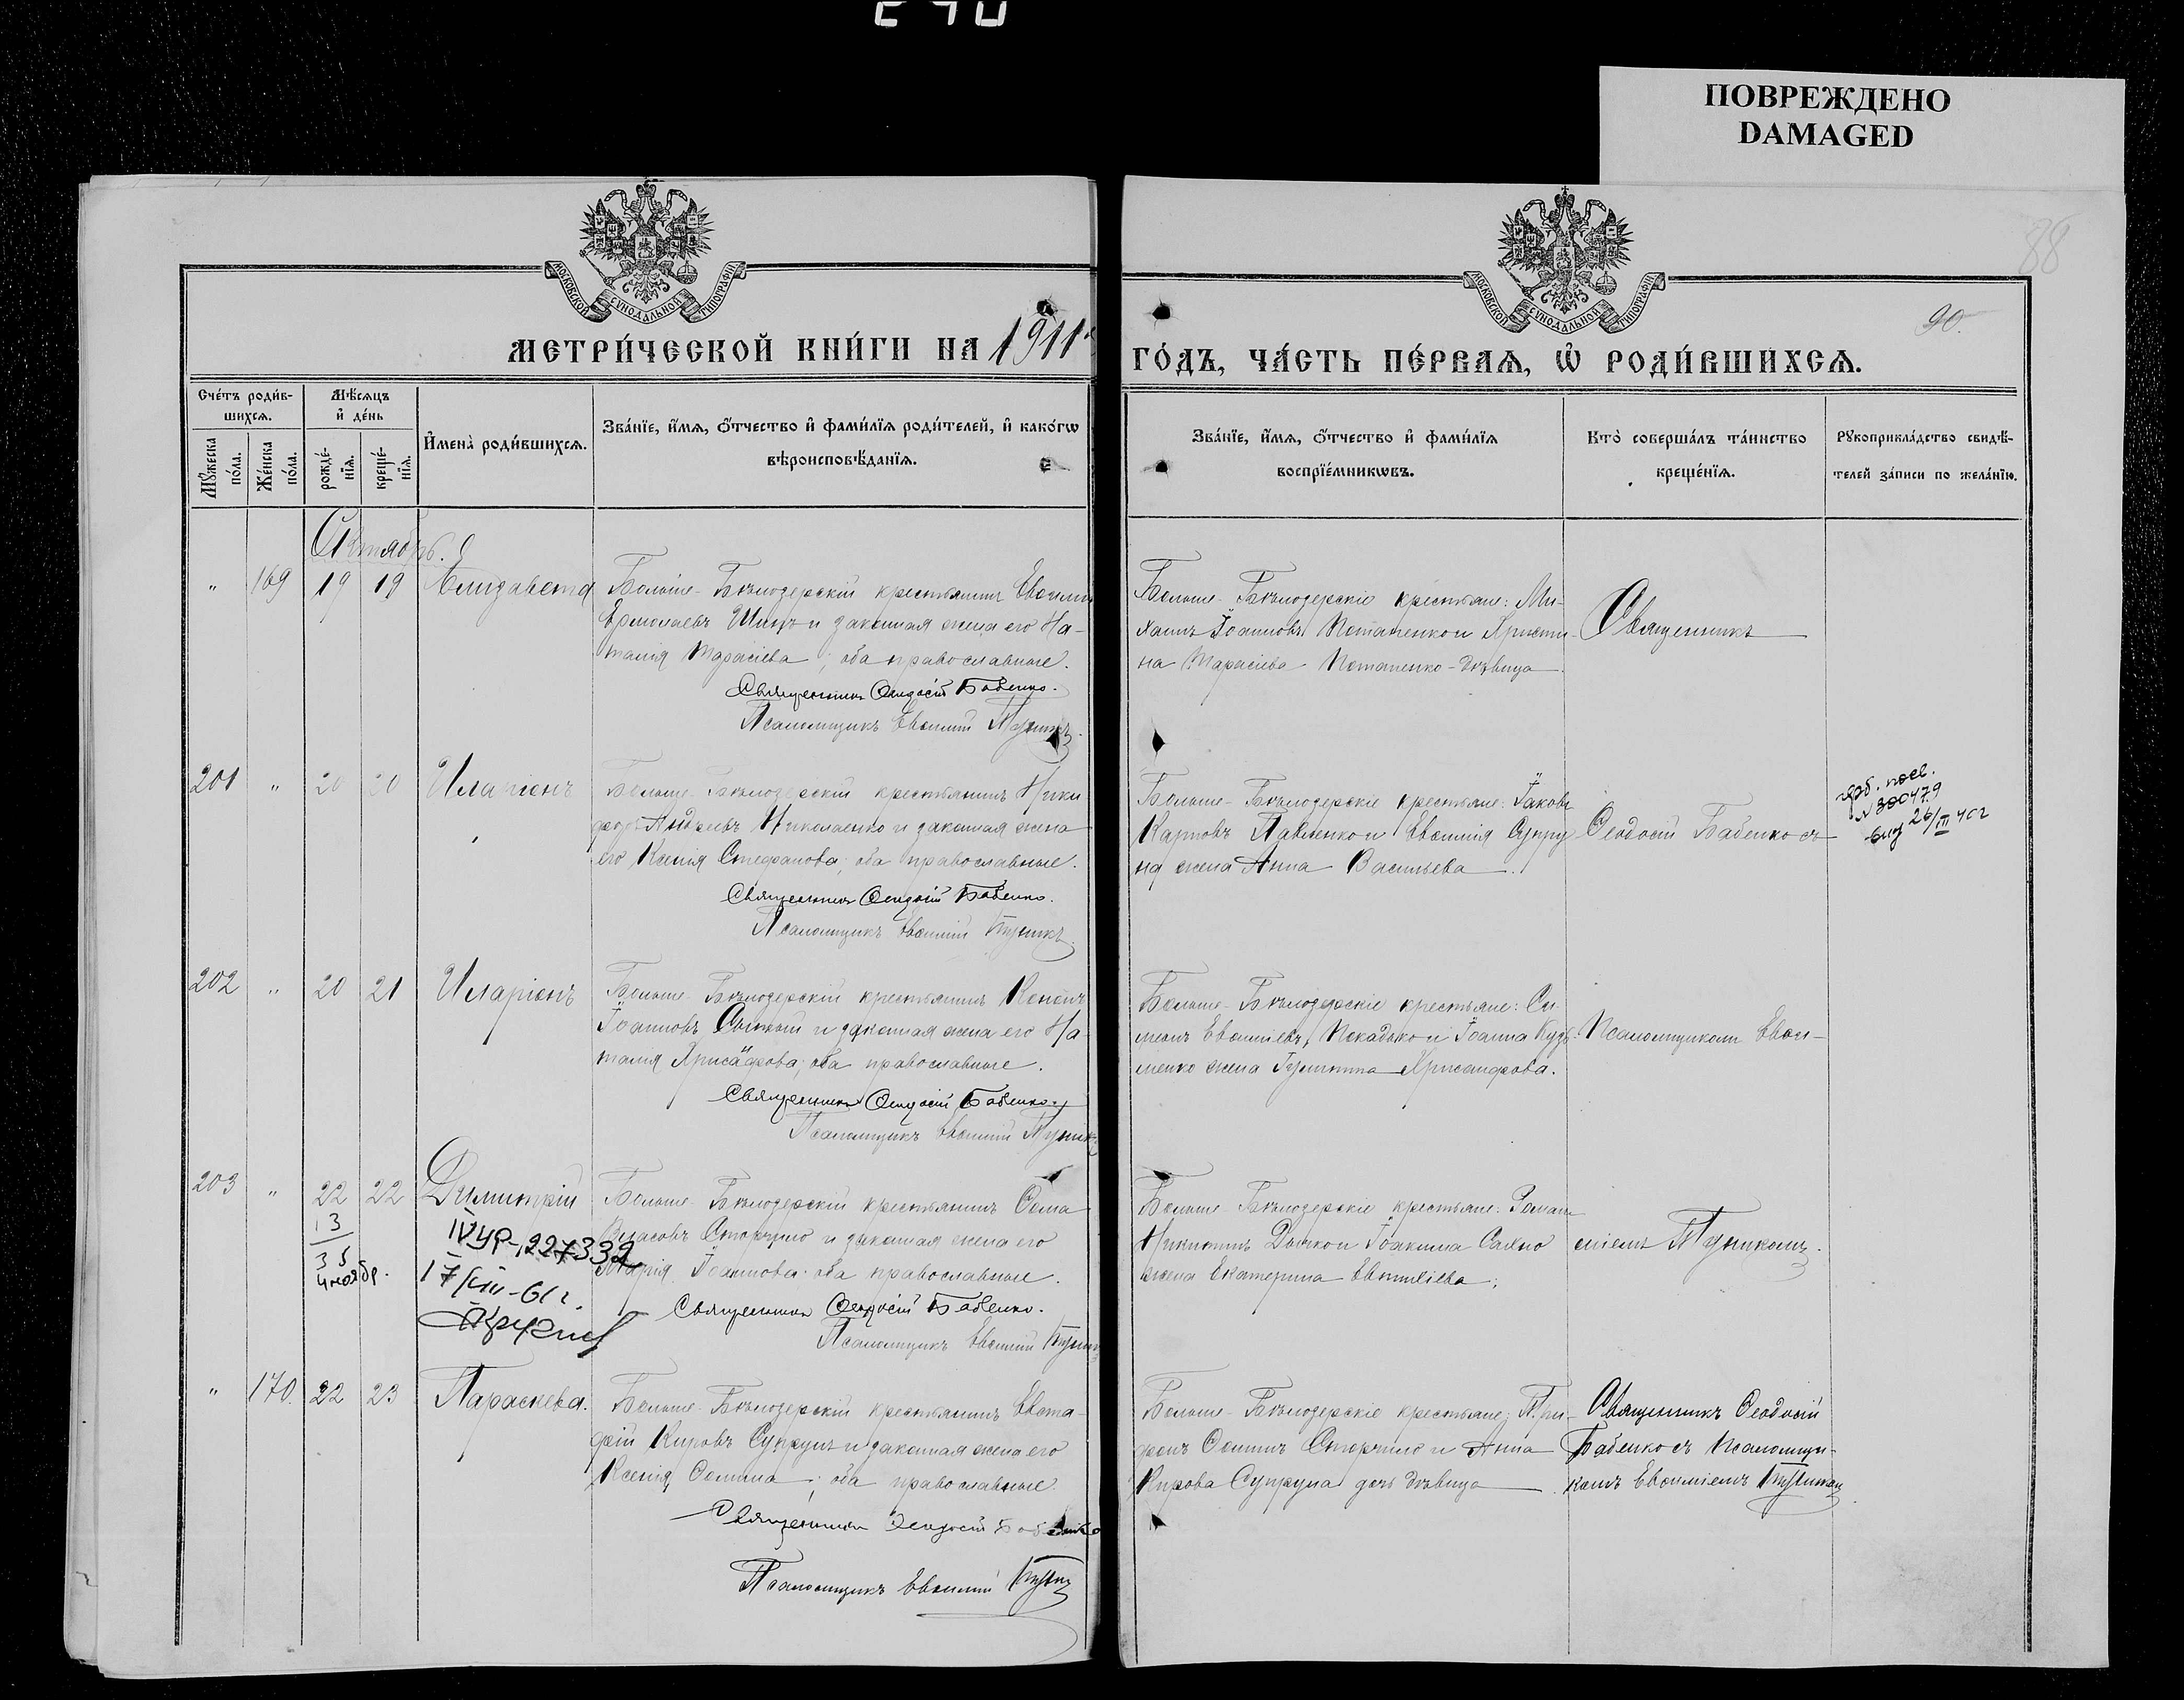 ПОВРЕЖДЕНО
DAMAGED
88
90.
МОСКОВСКОЙ СѴНОДАЛЬНОЙ ТИПОГРАФІИ
МОСКОВСКОЙ СѴНОДАЛЬНОЙ ТИПОГРАФІИ
МЕТРИ́ЧЕСКОЙ КНИ́ГИ НА 1911
ГО́ДЪ, ЧА́СТЬ ПЕ́РВАѦ, Ѡ҆ РОДИ́ВШИХСѦ.
Сче́тъ роди́в-
шихсѧ.
Мѣ́сѧцъ
и҆ де́нь
Мꙋ́жеска
по́ла.
Же́нска
по́ла.
рожде́-
нїѧ.
креще́-
нїѧ.
И҆мена̀ роди́вшихсѧ.
Зва́нїе, и҆́мѧ, ѻ҆́тчество и҆ фами́лїѧ роди́телей, и҆ како́гѡ
вѣроисповѣ́данїѧ.
Зва́нїе, и҆́мѧ, ѻ҆́тчество и҆ фами́лїѧ
воспрїе́мникѡвъ.
Кто̀ соверша́лъ та́инство
креще́нїѧ.
Рꙋкоприкла́дство свидѣ́-
телей за́писи по жела́нїю.
Октябрь.
" 169 19 19 Елизавета
Больше-Бѣлозерскій крестьянинъ Евѳимій
Ермолаевъ и законная жена его На-
талія Тарасіева; оба православные.
Священникъ Ѳеодосій Бабенко.
Псаломщикъ Евѳимій
Больше-Бѣлозерскіе крестьяне: Ми-
хаилъ Іоанновъ Потапенко и Христи-
на Тарасіева Потапенко-дѣвица
Священникъ
201 " 20 20 Иларіонъ
Больше-Бѣлозерскій крестьянинъ Ники-
форъ Андреевъ Николаенко и законная жена
его Ксенія Стефанова; оба православные.
Священникъ Ѳеодосій Бабенко.
Псаломщикъ Евѳимій
Больше-Бѣлозерскіе крестьяне: Іаковъ
Карповъ Павленко и Евѳимія Супру-
на жена Анна Васильева.
Ѳеодосій Бабенко съ
№ 300479
26/III 40г
202 " 20 21 Иларіонъ
Больше-Бѣлозерскій крестьянинъ Кононъ
Іоанновъ и законная жена его На-
талія Хрисанфова; оба православные.
Священникъ Ѳеодосій Бабенко
Псаломщикъ Евѳимій
Больше-Бѣлозерскіе крестьяне: Си-
меонъ Евѳиміевъ и Іоанна Кузь-
менко жена Хрисанфова.
Псаломщикомъ Евѳи-
203 " 22 22 Димитрій
13
35
4 ноябр.
IVУР-227332
17/VIII-61г.
Больше-Бѣлозерскій крестьянинъ Ѳома
Власовъ Сторчило и законная жена его
Марія Іоаннова; оба православные.
Священникъ Ѳеодосій Бабенко.
Псаломщикъ Евѳимій
Больше-Бѣлозерскіе крестьяне: Романъ
Никитинъ и Іоакима Сахно
жена Екатерина Евѳиміева;
міемъ
" 170. 22 23 Параскева.
Больше-Бѣлозерскій крестьянинъ Евста-
фій Кировъ Супрунъ и законная жена его
Ксенія Ѳомина; оба православные.
Священникъ Ѳеодосій Бабенко
Псаломщикъ Евѳимій
Больше-Бѣлозерскіе крестьяне: Три-
фонъ Ѳоминъ Сторчило и Анна
Кирова Супруна дочь дѣвица
Священникъ Ѳеодосій
Бабенко съ Псаломщи-
комъ Евѳиміемъ